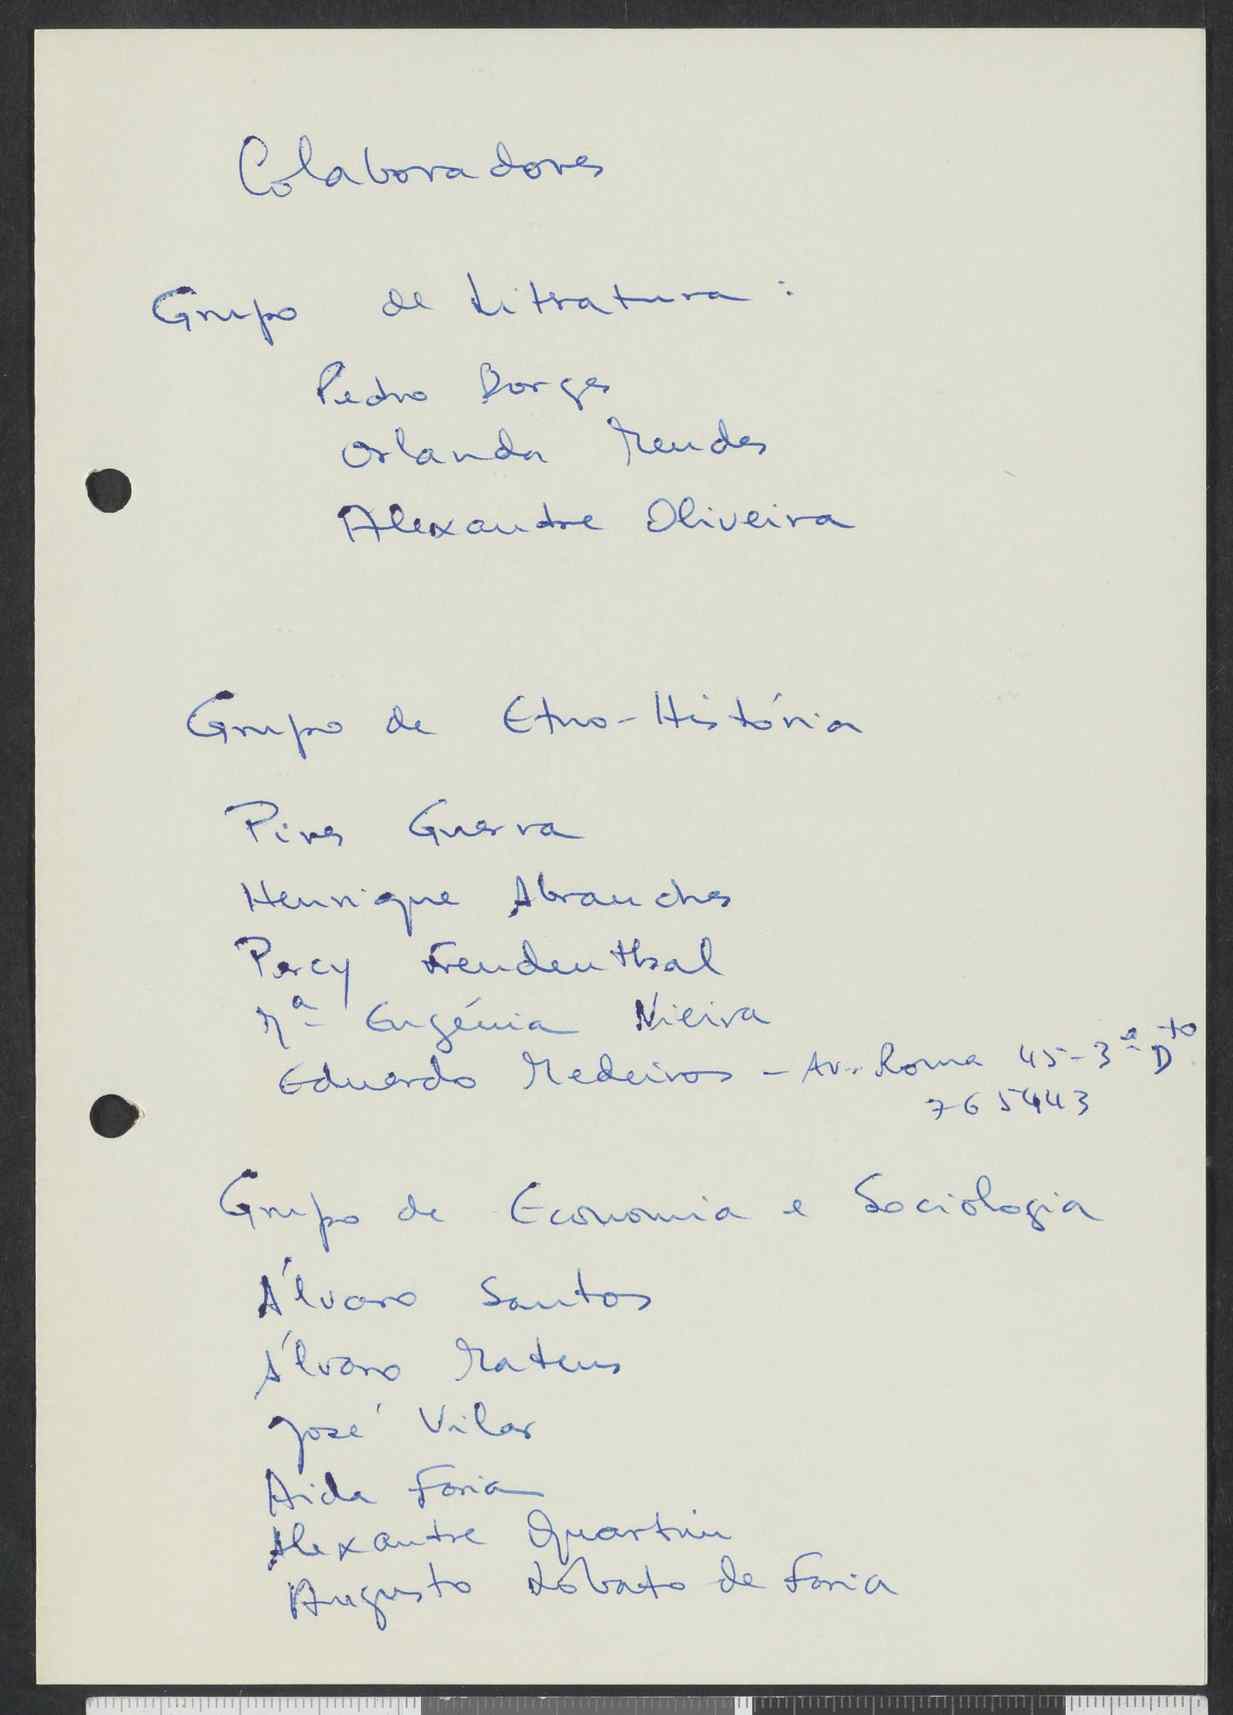 Colaboradores
Grupo de Litratura :
Pedro Borges
Orlanda Mendes
Alexandre Oliveira
Grupo de Etno-História
Pires Guerra
Henrique Abranches
Percy Freudenthal
Mª Eugénia Nieira
Eduardo Medeiros - Av. Roma 45-3º Dto
765443
Grupo de Economia e Sociologia
Álvaro Santos
Álvaro Mateus
José Vilar
Aida Faria
Alexantre Quartin
Augusto Lobato de Faria